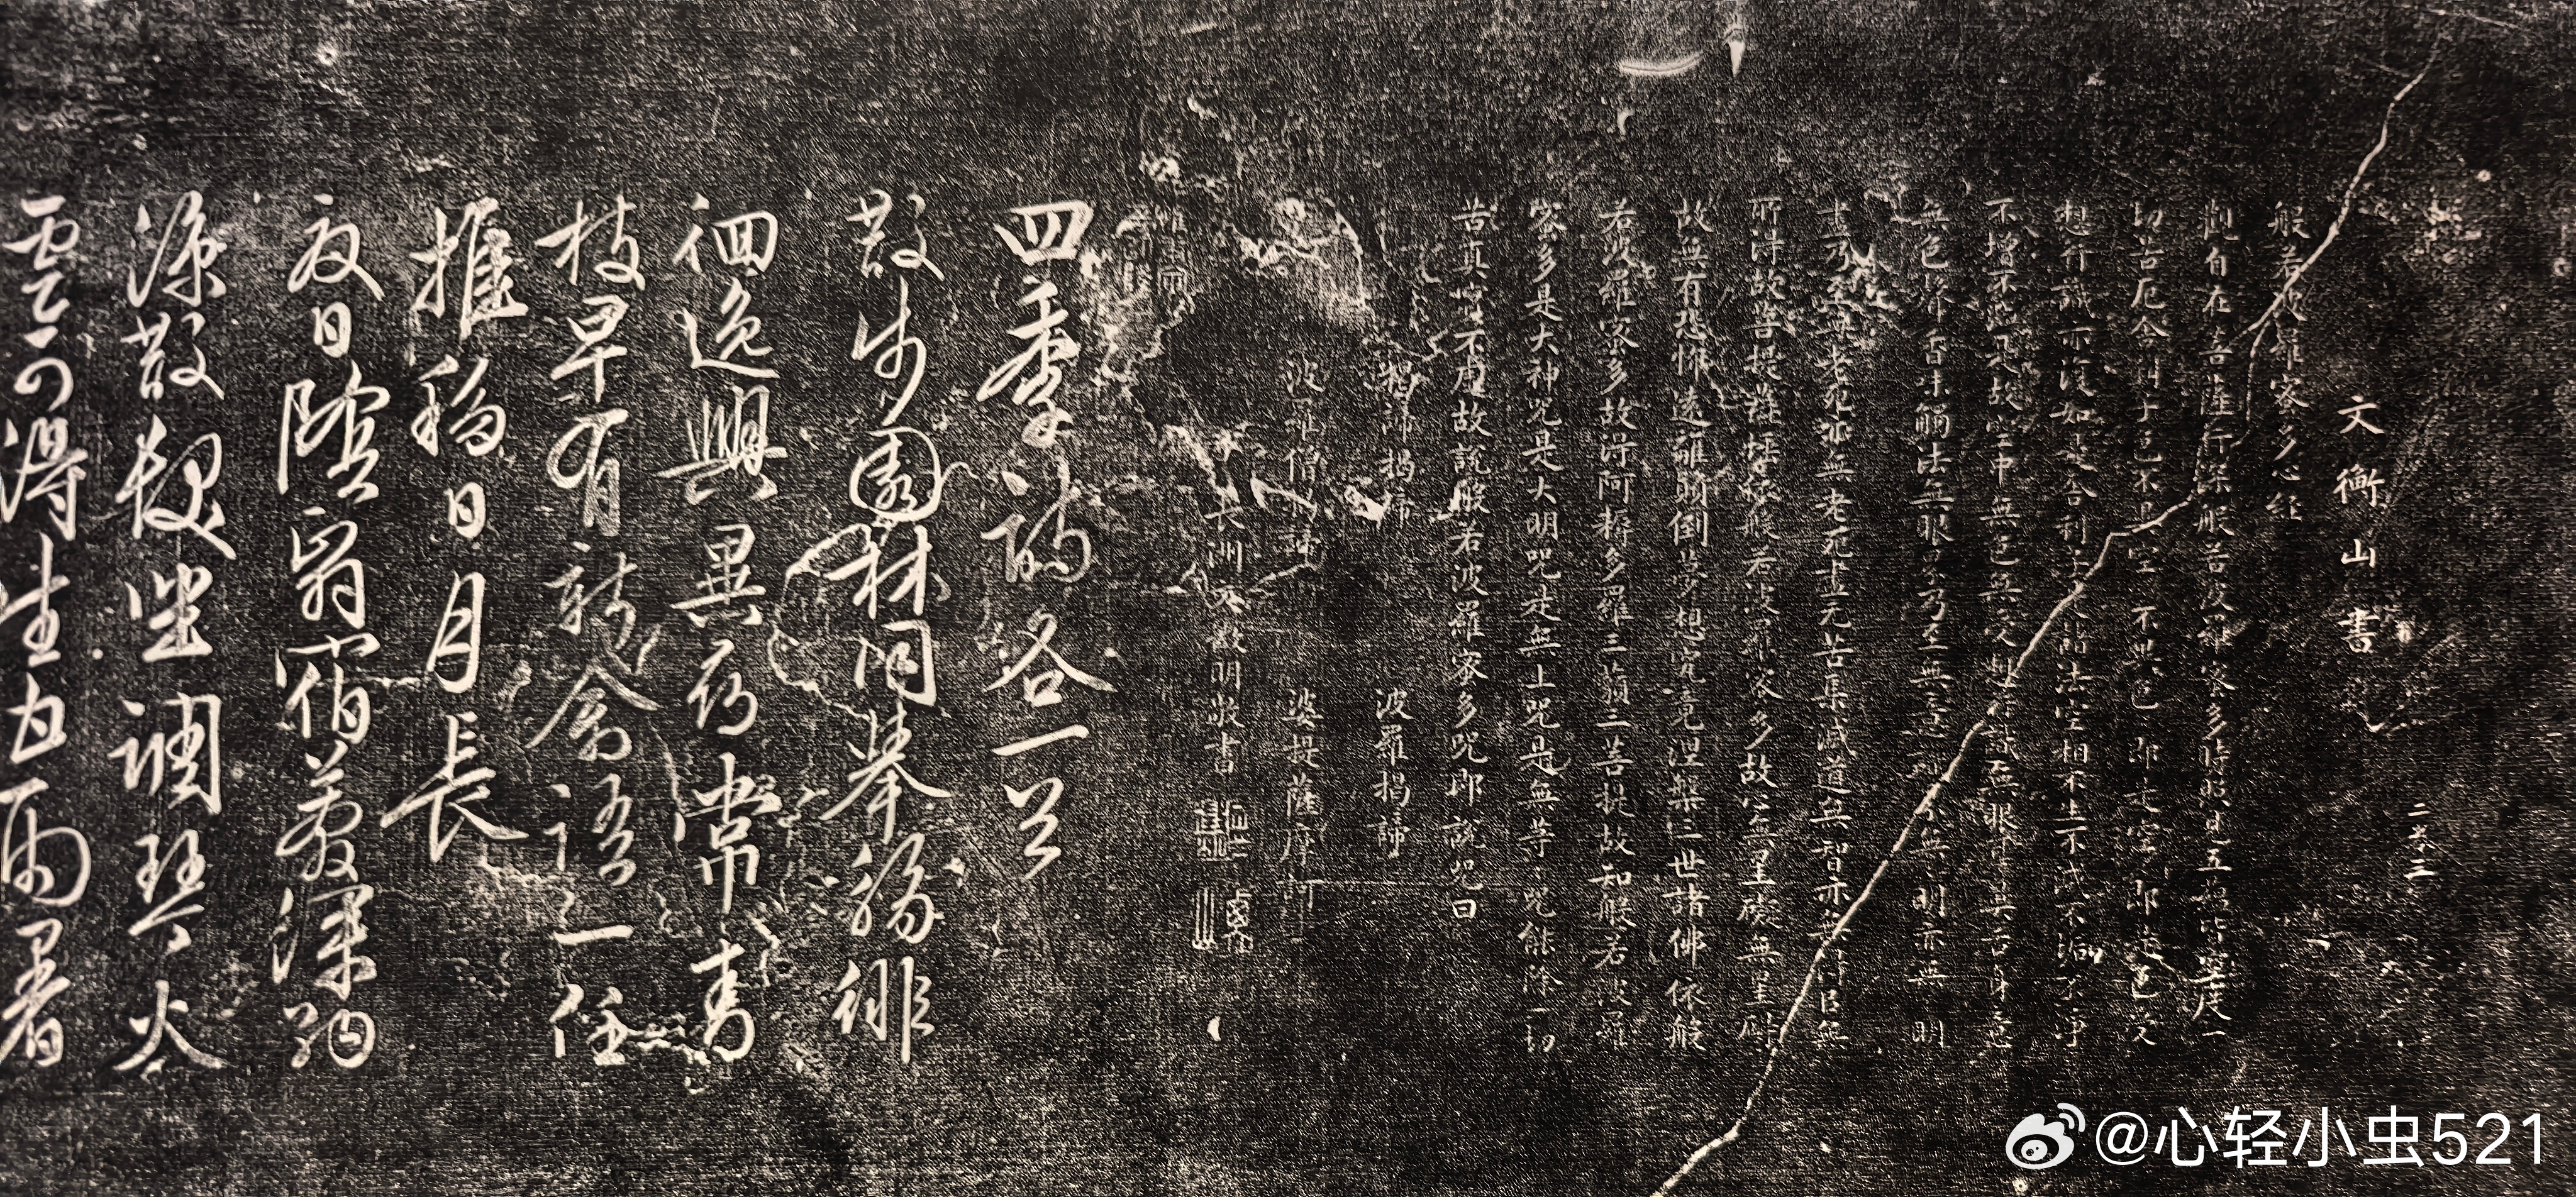 文衡山書
般若波羅密多心经
觀自在菩薩行深般若波羅密多時照見五蕴皆空度一
切苦厄舍利子色不異空不異色即是空空即是色受
想行識亦復如是舍利子是諸法空相不生不滅不垢不淨
不增不減是故空中無色無受想行識無眼耳鼻舌身意
無色聲香味觸法無眼界乃至無意識界無無明亦無無明
盡乃至無老死亦無老死盡无苦集滅道無智亦無得以無
所得故菩提薩埵依般若波羅密多故心無罣礙無罣礙
故無有恐怖遠離顛倒夢想究竟涅槃三世諸佛依般
若波羅密多故得阿耨多羅三藐三菩提故知般若波羅
密多是大神咒是大明咒是無上咒是無等等咒能除一切
苦真實不虛故說般若波羅密多咒即說咒曰
揭諦揭諦 波羅揭諦
波羅僧揭諦 婆提薩摩訶
長洲文徵明敬書
四季詩各一首
散步園林同舉觴徘
徊逸興異於常青
枝早有新禽語一任
推移日月長
夏日陰窗宿霧深
添散坐調琴火
雲可得生白雨暑
@心轻小虫521